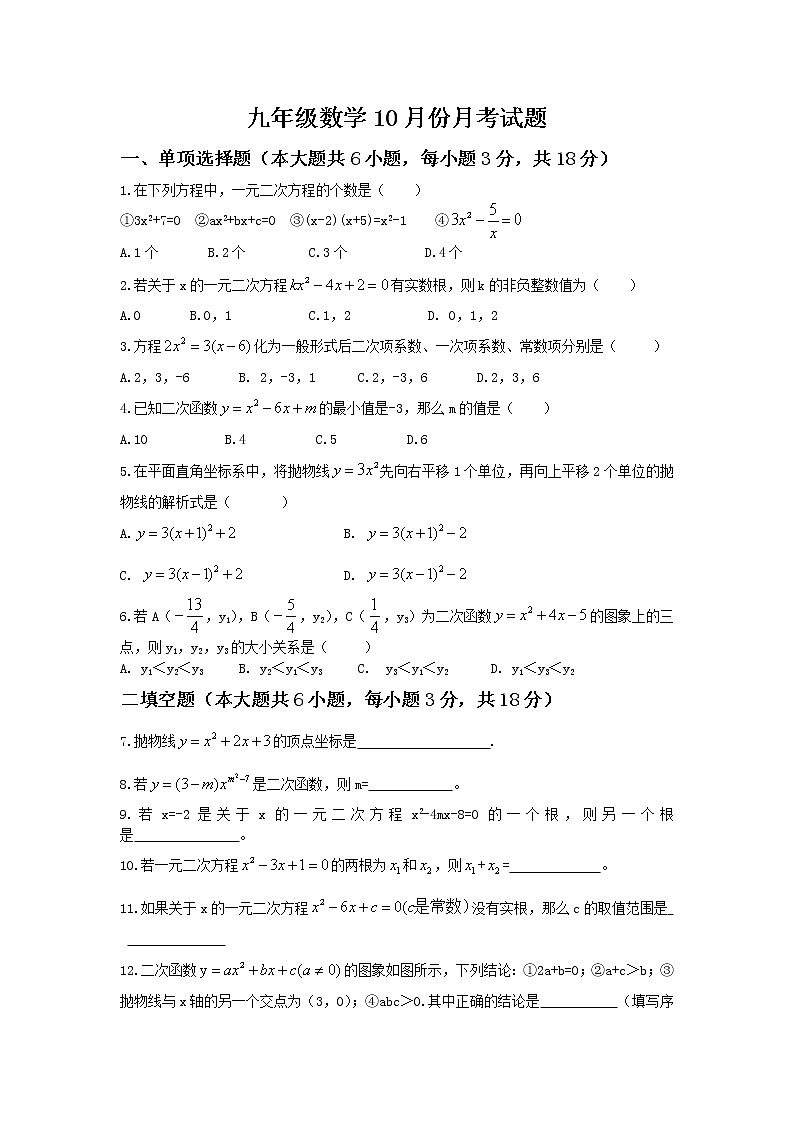 九年级数学10月份月考试题
一、单项选择题（本大题共6小题，每小题3分，共18分）
1.在下列方程中，一元二次方程的个数是（　　）
①3x²+7=0 ②ax²+bx+c=0 ③(x-2)(x+5)=x²-1 ④3x²-5/x=0
A.1个 B.2个 C.3个 D.4个
2.若关于x的一元二次方程kx²-4x+2=0有实数根，则k的非负整数值为（　　）
A.0 B.0，1 C.1，2 D. 0，1，2
3.方程2x²=3(x-6)化为一般形式后二次项系数、一次项系数、常数项分别是（　　）
A.2，3，-6 B. 2，-3，1 C.2，-3，6 D.2，3，6
4.已知二次函数y=x²-6x+m的最小值是-3，那么m的值是（　　）
A.10 B.4 C.5 D.6
5.在平面直角坐标系中，将抛物线y=3x²先向右平移1个单位，再向上平移2个单位的抛
物线的解析式是（　　）
A.y=3(x+1)²+2 B. y=3(x+1)²-2
C. y=3(x-1)²+2 D. y=3(x-1)²-2
6.若A（-13/4,y₁），B（-5/4,y₂），C（1/4,y₃）为二次函数y=x²+4x-5的图象上的三
点，则y₁，y₂，y₃的大小关系是（　　）
A. y₁＜y₂＜y₃ B. y₂＜y₁＜y₃ C. y₃＜y₁＜y₂ D. y₁＜y₃＜y₂
二填空题（本大题共6小题，每小题3分，共18分）
7.抛物线y=x²+2x+3的顶点坐标是___________________.
8.若y=(3-m)x^(m²-7)是二次函数，则m=____________。
9.若x=-2是关于x的一元二次方程x²-4mx-8=0的一个根，则另一个根
是_______________。
10.若一元二次方程x²-3x+1=0的两根为x₁和x₂，则x₁+x₂=_____________。
11.如果关于x的一元二次方程x²-6x+c=0(c是常数)没有实根，那么c的取值范围是_
______________
12.二次函数y=ax²+bx+c(a≠0)的图象如图所示，下列结论：①2a+b=0；②a+c＞b；③
抛物线与x轴的另一个交点为（3，0）；④abc＞0.其中正确的结论是___________（填写序